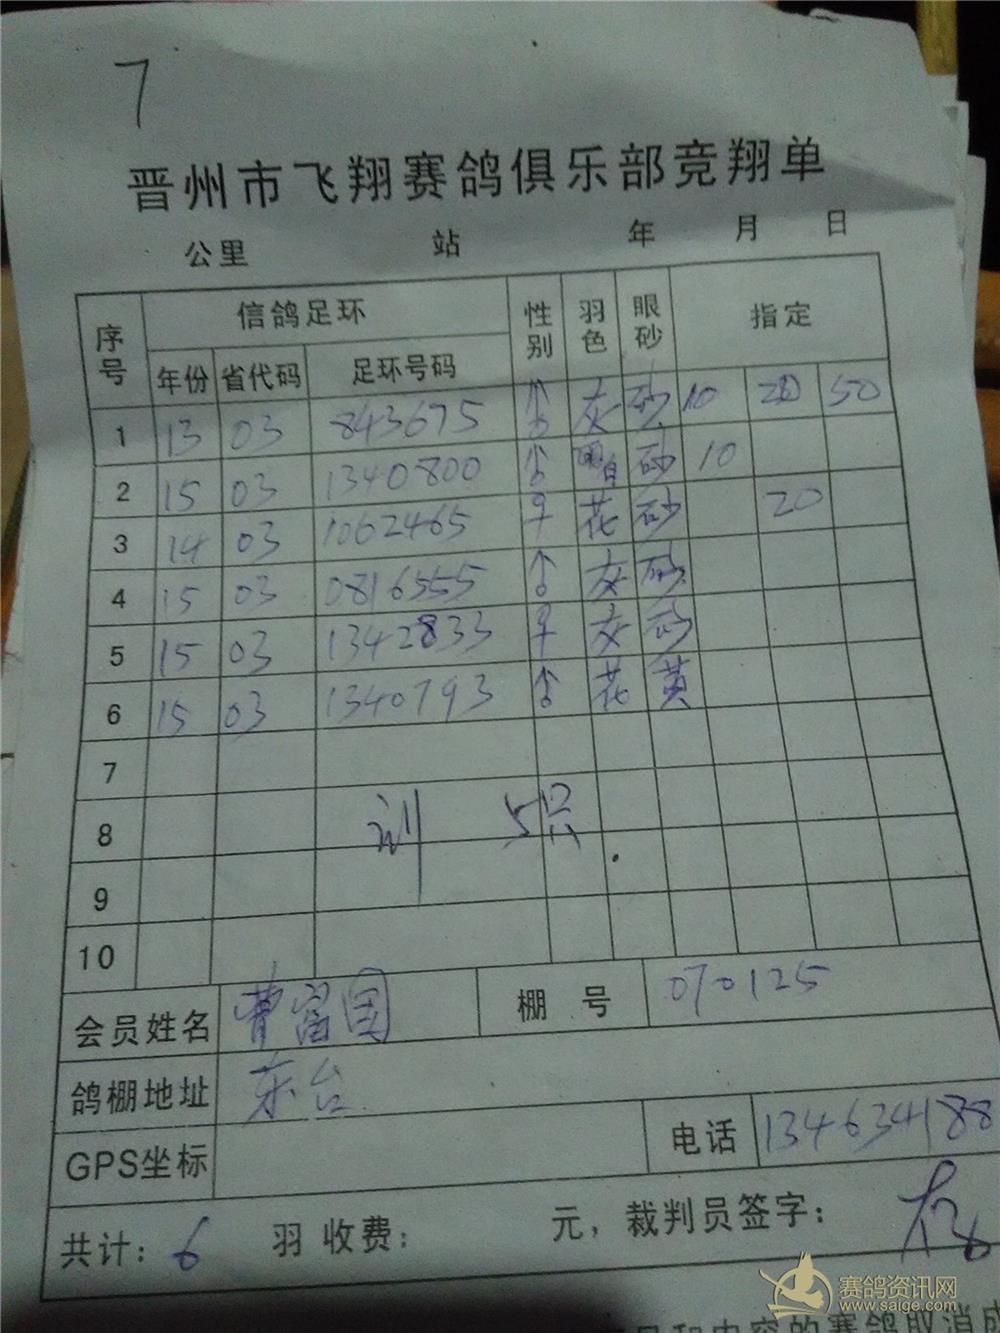 7
晋州市飞翔赛鸽俱乐部竞翔单
公里 站 年 月 日
序号 信鸽足环 性别 羽色 眼砂 指定
年份 省代码 足环号码
1 13 03 843675 ♂ 灰 砂 10 20 50
2 15 03 1340800 ♂ 雨白 砂 10
3 14 03 1062465 ♀ 花 砂 20
4 15 03 0816555 ♂ 灰 砂
5 15 03 1342833 ♀ 灰 砂
6 15 03 1340793 ♂ 花 黄
7
8 训 5只
9
10
会员姓名 曹富国 棚号 070125
鸽棚地址 东台
GPS坐标 电话 134634188
共计: 6 羽 收费: 元, 裁判员签字:
赛鸽资讯网
www.saige.com
和内容的赛鸽取消成